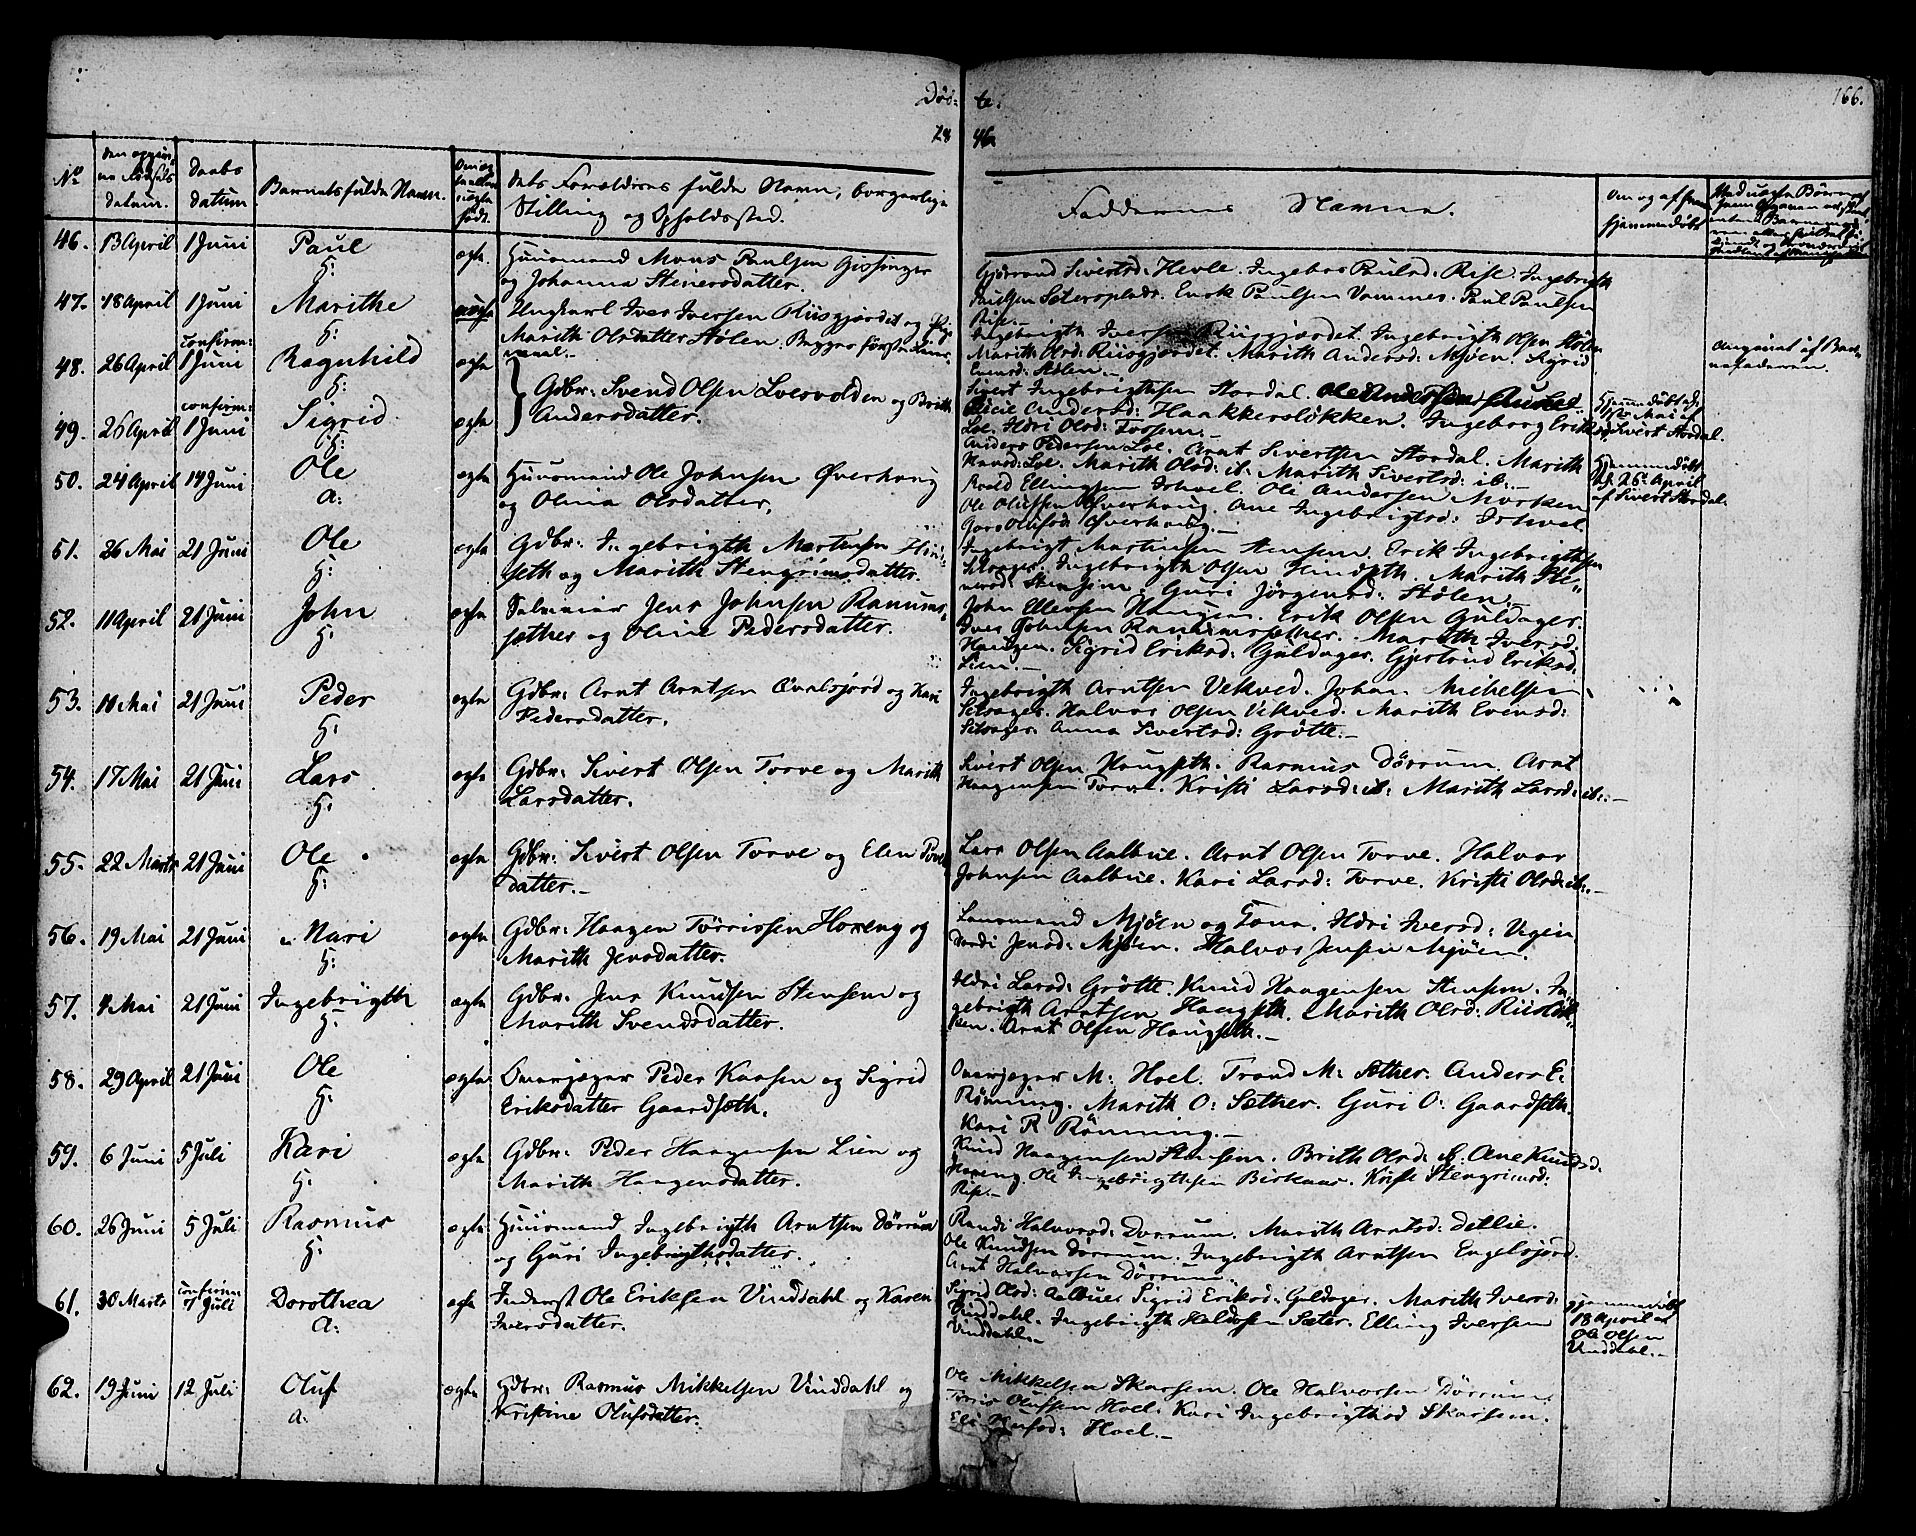 Døb= te.
166.
18 46
No
Daabs
datum
Barnets fulde Navn.
dets Forældres fulde Navn, borgerlige
Stilling og Opholdssted.
Faddernes Navne.
Om og af hvem
hjemmedøbt
46. 13 April 1 Juni Paul H: ægte Huusmand Mons Paulsen Gissinger
og Johanna Steinersdatter.
Paulsen Sætersplads. Erik Paulsen Vammes. Paul Paulsen
Rise.
47. 18 April 1 Juni Marithe H: uægte Ungkarl Iver Iversen Riisgjærdet og Pige
Marith Olsdatter Stølen. Begges første Leier-
maal.
Ingebrigth Iversen Riisgjærdet. Ingebrigth Olsen Stølen
Marith Olsd: Riisgjærdet. Marith Andersd: Mjøen. Sigrid
Evensd: Stølen.
Angivet af Bar-
nefaderen.
48. 26 April confirm: 1 Juni Ragnhild H: ægte
Gdbr: Svend Olsen Loesvolden og Brith
Andersdatter.
Sivert Ingebrigthsen Stordal.
Andersd: Haakkersløkken. Ingeborg Eriksd:
Loe. Ildri Olsd: Tossem.
Hjemmedøbt
af Sivert Stordal.
49. 26 April confirm: 1 Juni Sigrid H: ægte
Anders Pedersen Loe. Arnt Sivertsen Stordal. Marith
Loe. Marith Olsd: ib: Marith Sivertsd: ib:
Hjemmedøbt
d. 26 April
af Sivert Stordal.
50. 24 April 14 Juni Ole a: ægte Huusmand Ole Johnsen Øverhaug
og Olina Olsdatter.
Ellingsen Ishoel. Ole Andersen Morken
Ole Olufsen Øverhaug. Ane Ingebrigtsd: Ishoel
Olufsd: Øverhaug.
51. 26 Mai 21 Juni Ole H: ægte Gdbr: Ingebrigth Martinsen Hind-
seth og Marith Stengrimsdatter.
Ingebrigt Martinsen Stensem. Erik Ingebrigthsen
Sætrager. Ingebrigth Olsen Hindseth. Marith
Guri Jørgensd: Stølen
52. 11 April 21 Juni John H: ægte Jens Johnsen Ranums-
sæther og Oline Pedersdatter.
John Ellevsen Haugen. Erik Olsen Guldager.
Iver Johnsen Ranumssæther. Marith Iversd:
Haugen. Sigrid Eriksd: Guldager. Gjertrud Eriksd:
Lien.
53. 10 Mai 21 Juni Peder H: ægte Gdbr: Arnt Arntsen Qvalsjord og Kari
Pedersdatter.
Ingebrigth Arntsen Vekved. Johan Michelsen
Sætrager. Halvor Olsen Vekved. Marith Evensd:
Sætrager. Anna Sivertsd: Grøtte.
54. 17 Mai 21 Juni Lars H: ægte Gdbr: Sivert Olsen Torve og Marith
Larsdatter.
Sivert Olsen Haugseth. Rasmus Dørrum. Arnt
Haagensen Torve. Kristi Larsd: ib: Marith Larsd: ib:
55. 22 Marts 21 Juni Ole H: ægte Gdbr: Sivert Olsen Torve og Elen
datter.
Lars Olsen Aalbue. Arnt Olsen Torve. Halvor
Johnsen Aalbue. Kari Larsd: Torve. Kristi Olsd: ib:
56. 19 Mai 21 Juni Mari H: ægte Gdbr: Haagen Tørrissen Horreng og
Marith Jensdatter.
Lensmand Mjøen og Kona. Ildri Iversd: Vigen
Randi Jensd: Mjøen. Halvor Jensen Mjøen.
57. 4 Mai 21 Juni Ingebrigth H: ægte Gdbr: Jens Knudsen Stensem og
Marith Svendsdatter.
Ildri Larsd: Grøtte. Knud Haagensen Stensem. In-
gebrigth Arntsen Haugseth. Marith Olsd: Riisløk-
ken. Arnt Olsen Haugseth.
58. 29 April 21 Juni Ole H: ægte Overjæger Peder Kaasen og Sigrid
Eriksdatter Gaardseth.
Overjæger M: Hoel. Trond M: Sæther. Anders E:
Rønning. Marith O: Sæther. Guri O: Gaardseth.
Kari R Rønning.
59. 6 Juni 5 Juli Kari H: ægte Gdbr: Peder Haagensen Lien og
Marith Haagensdatter.
Knud Haagensen Stensem. Brith Olsd: ib. Ane Knudsd:
Horreng. Ole Ingebrigthsen Birkaas. Kristi Stengrimsd:
Rise.
60. 26 Juni 5 Juli Rasmus H: ægte Huusmand Ingebrigth Arntsen Dørrum
og Guri Ingebrigthsdatter.
Randi Halvorsd: Dørrum. Marith Arntsd: Detlie.
Ole Knudsen Dørrum. Ingebrigth Arntsen Engelsjord.
Arnt Halvorsen Dørrum.
61. 30 Marts confirm: Juli Dorothea A: ægte Inderst Ole Eriksen Vinddahl og Karen
Iversdatter.
Sigrid Olsd: Aalbue. Sigrid Eriksd: Guldager. Marith Iversd:
Vinddahl. Ingebrigth Haldosen Sæter. Elling Iversen
Vinddahl.
Hjemmedøbt
18 April af
Ole Olsen
Vinddahl.
62. 19 Juni 12 Juli Oluf a: ægte Gdbr: Rasmus Mikkelsen Vinddahl og
Kristine Olufsdatter.
Ole Mikkelsen Skarsem. Ole Halvorsen Dørrum.
Tørris Olufsen Hoel. Kari Ingebrigthsd Skarsem.
Eli Olufsd: Hoel.